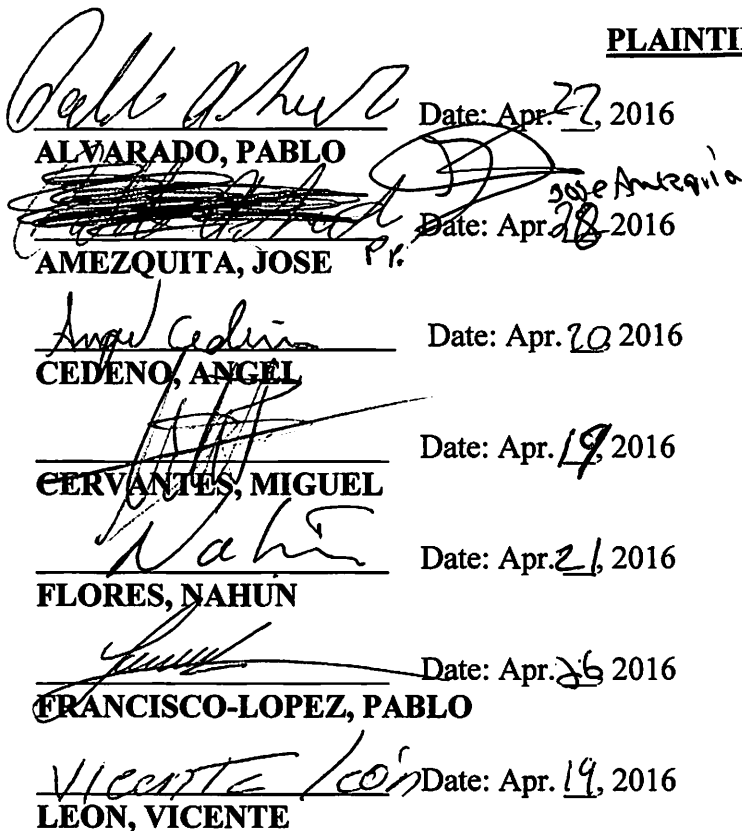 PLAINTI
Date: Apr. 27, 2016
ALVARADO, PABLO
Jose Amezquita
Date: Apr. 28 2016
AMEZQUITA, JOSE
Angel Cedeño
Date: Apr. 20 2016
CEDENO, ANGEL
Date: Apr. 19, 2016
CERVANTES, MIGUEL
Nahún
Date: Apr. 21, 2016
FLORES, NAHUN
Date: Apr. 26 2016
FRANCISCO-LOPEZ, PABLO
Vicente león Date: Apr. 19, 2016
LEON, VICENTE